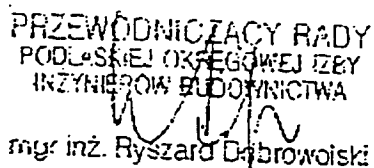 PRZEWODNICZĄCY RADY
PODLASKIEJ OKRĘGOWEJ IZBY
INŻYNIERÓW BUDOWNICTWA
mgr inż. Ryszard Dobrowolski